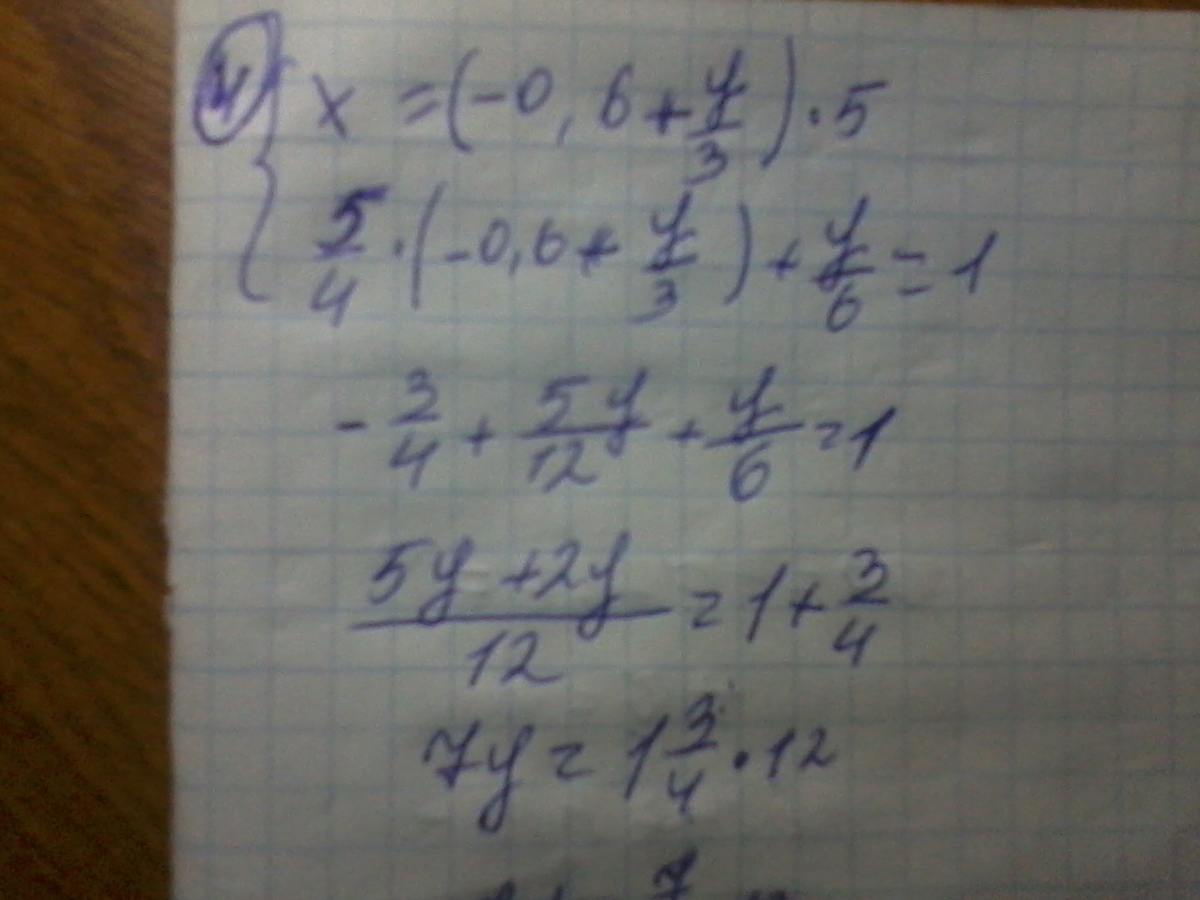 ④ { x = (-0,6 + y/3) · 5
5/4 · (-0,6 + y/3) + y/6 = 1
- 3/4 + 5y/12 + y/6 = 1
(5y + 2y)/12 = 1 + 3/4
7y = 1 3/4 · 12